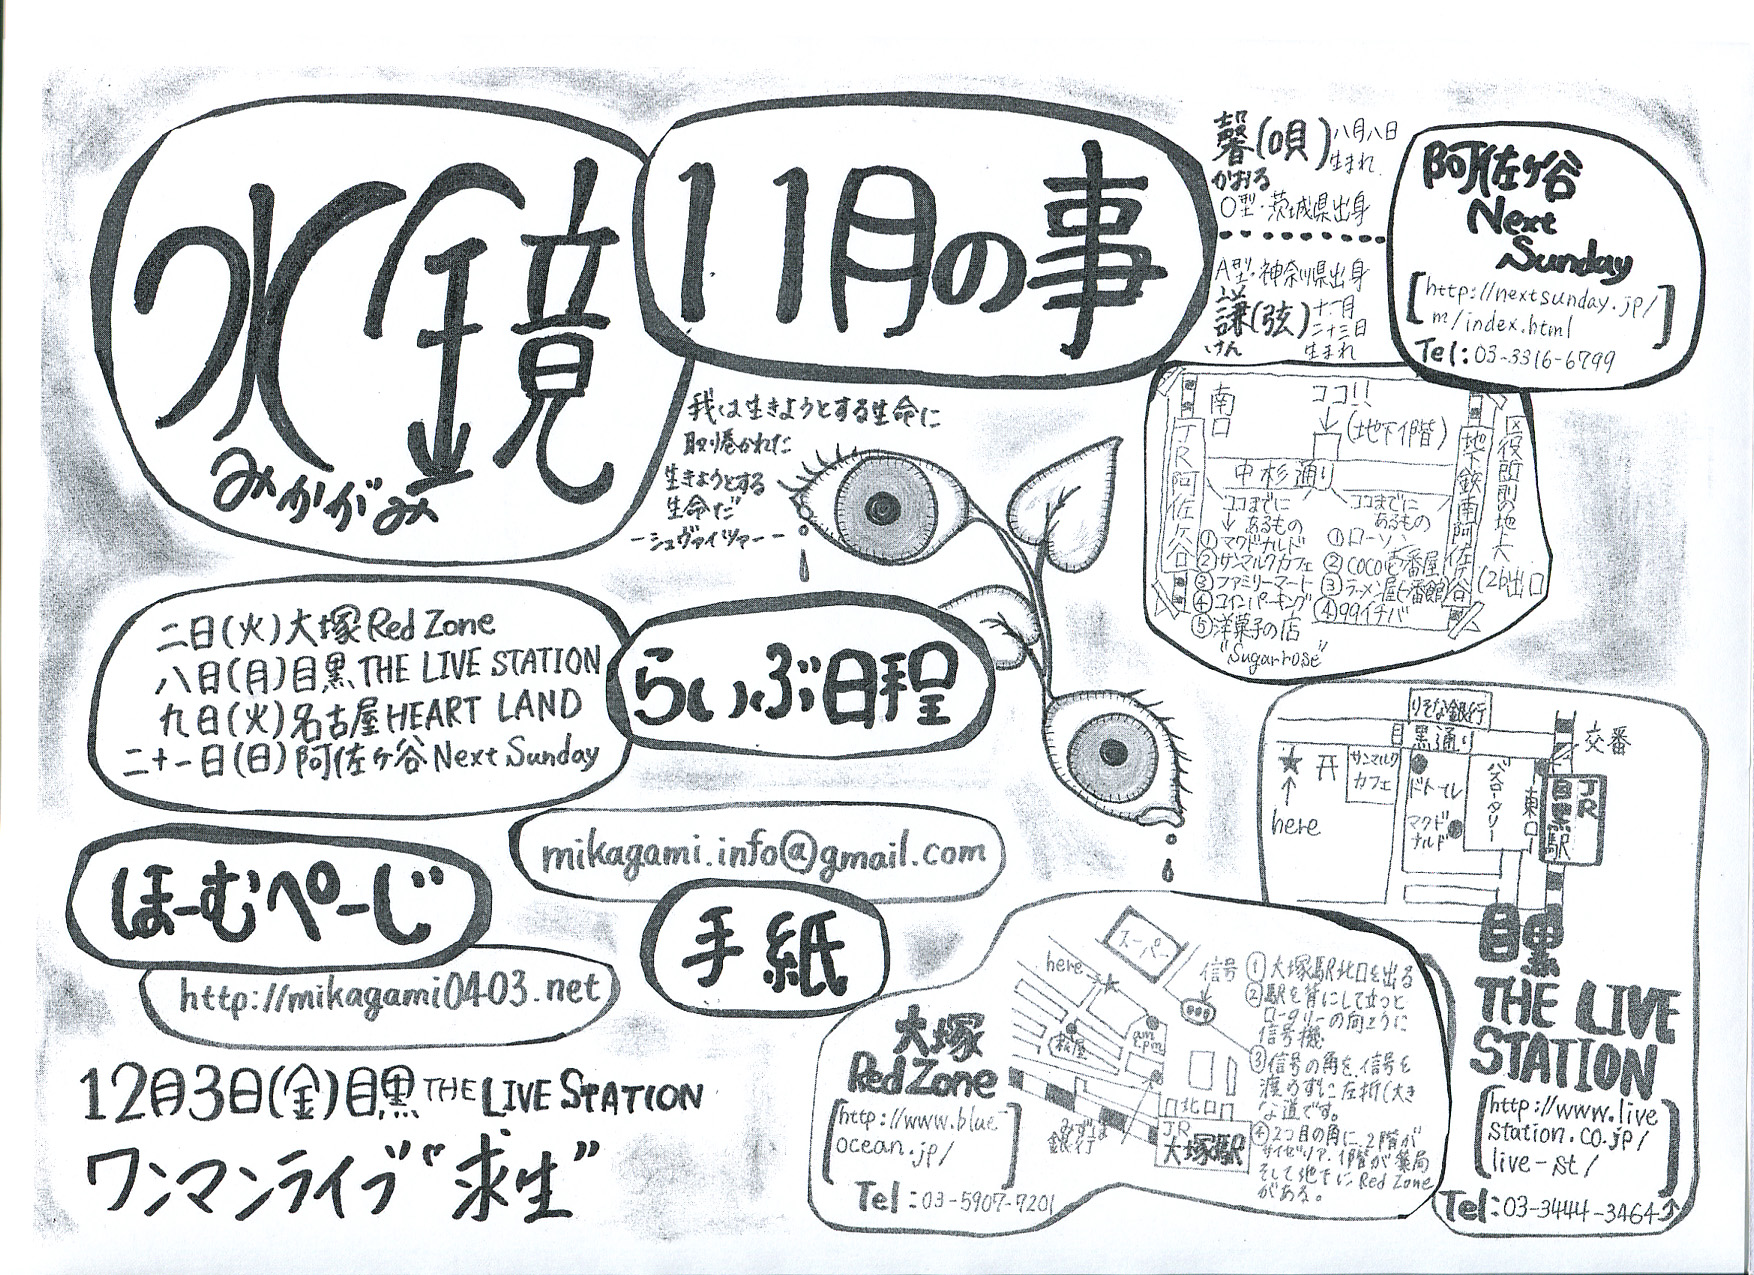 水鏡
みかがみ
11月の事
馨(唄)八月八日
生まれ
かおる
O型・茨城県出身
A型・神奈川県出身
謙(弦)十一月
二十三日
生まれ
けん
阿佐ヶ谷
Next
Sunday
http://nextsunday.jp/
m/index.html
Tel:03-3316-6799
我は生きようとする生命に
取り巻かれた
生きようとする
生命だ
ーシュヴァイツァーー
南口
ココ!!
(地下1階)
JR阿佐ヶ谷
中杉通り
地下鉄南阿佐ヶ谷
区役所前の地上
(2b出口
ココまでに
あるもの
①マクドナルド
②サンマルクカフェ
③ファミリーマート
④コインパーキング
⑤洋菓子の店
"Sugarrose"
ココまでに
あるもの
①ローソン
②COCO壱番屋
③ラーメン屋七番館
④99イチバ
二日(火)大塚Red Zone
八日(月)目黒THE LIVE STATION
九日(火)名古屋HEART LAND
二十一日(日)阿佐ヶ谷Next Sunday
らいぶ日程
りそな銀行
目黒通り
交番
サンマルク
カフェ
ドトール
マクド
ナルド
バスロータリー
東口
JR
目黒駅
here
目黒
THE LIVE
STATION
http://www.live
station.co.jp/
live-st/
Tel:03-3444-3464
mikagami.info@gmail.com
手紙
ほーむぺーじ
http://mikagami0403.net
12月3日(金)目黒THE LIVE STATION
ワンマンライブ"求生"
大塚
Red Zone
http://www.blue
ocean.jp/
Tel:03-5907-7201
スーパー
here
信号
松屋
am
p.m
北口
みずほ
銀行
JR
大塚駅
①大塚駅北口を出る
②駅を背にして立つと
ロータリーの向こうに
信号機
③信号の角を、信号を
渡らずに左折(大き
な道です。
④2つ目の角に、2階が
サイゼリア、1階が薬局
そして地下にRed Zone
がある。